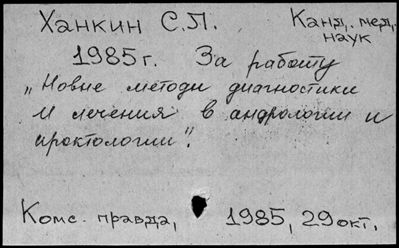 Ханкин С.П. Канд. мед.
наук
1985г. За работу
„Новые методы диагностики
и лечения в андрологии и
проктологии".
Комс. правда, 1985, 29 окт.